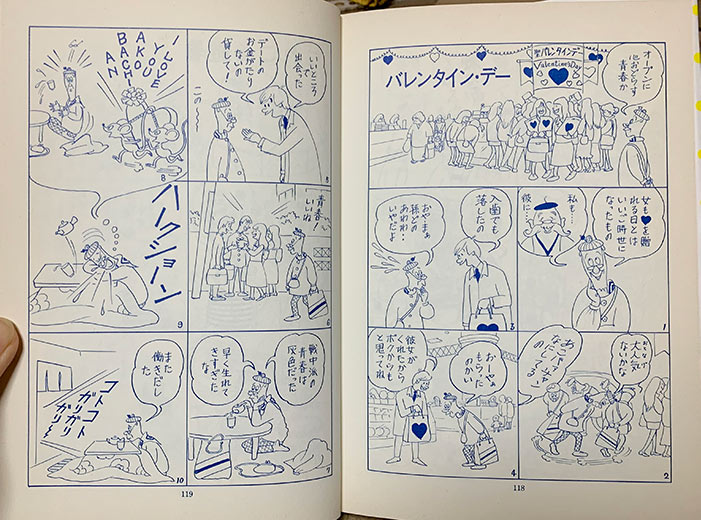 聖バレンタインデー
Valentine's Day
バレンタイン・デー
オープンに
心おどらす
青春か
女も♥を贈
れる日とは
いいご時世に
なったもの
私も…
彼に…
1
大人気
ないかな
2
入歯でも
落したの
おやまぁ
孫どの
あわわ・・
いやだよ
3
おや
もらった
のかい
彼女が
くれたから
ボクからも
と思ってね
4
118
いいところ
出会った
デートの
お金がたり
ないの
貸して!
この〜〜
5
青春!
いいね
6
戦中派の
青春は
灰色だった
早く生れて
きすぎた
7
I LOVE
YOU
AKOU
BACHI
AN
8
ハークショーン
9
また
働きだし
た
コトコト
ガリガリ
ガリ〜
10
119